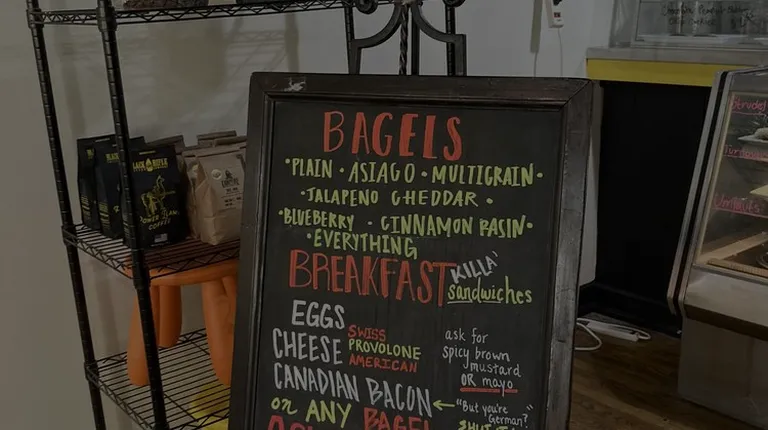 BAGELS
•PLAIN • ASIAGO • MULTIGRAIN•
•JALAPENO CHEDDAR •
•BLUEBERRY • CINNAMON RASIN•
•EVERYTHING
BREAKFAST
KILLA'
sandwiches
EGGS
CHEESE
SWISS
PROVOLONE
AMERICAN
CANADIAN BACON
on ANY BAGEL
ask for
spicy brown
mustard
OR mayo
"But you're
German?"
BLACK RIFLE
COFFEE
Strudel